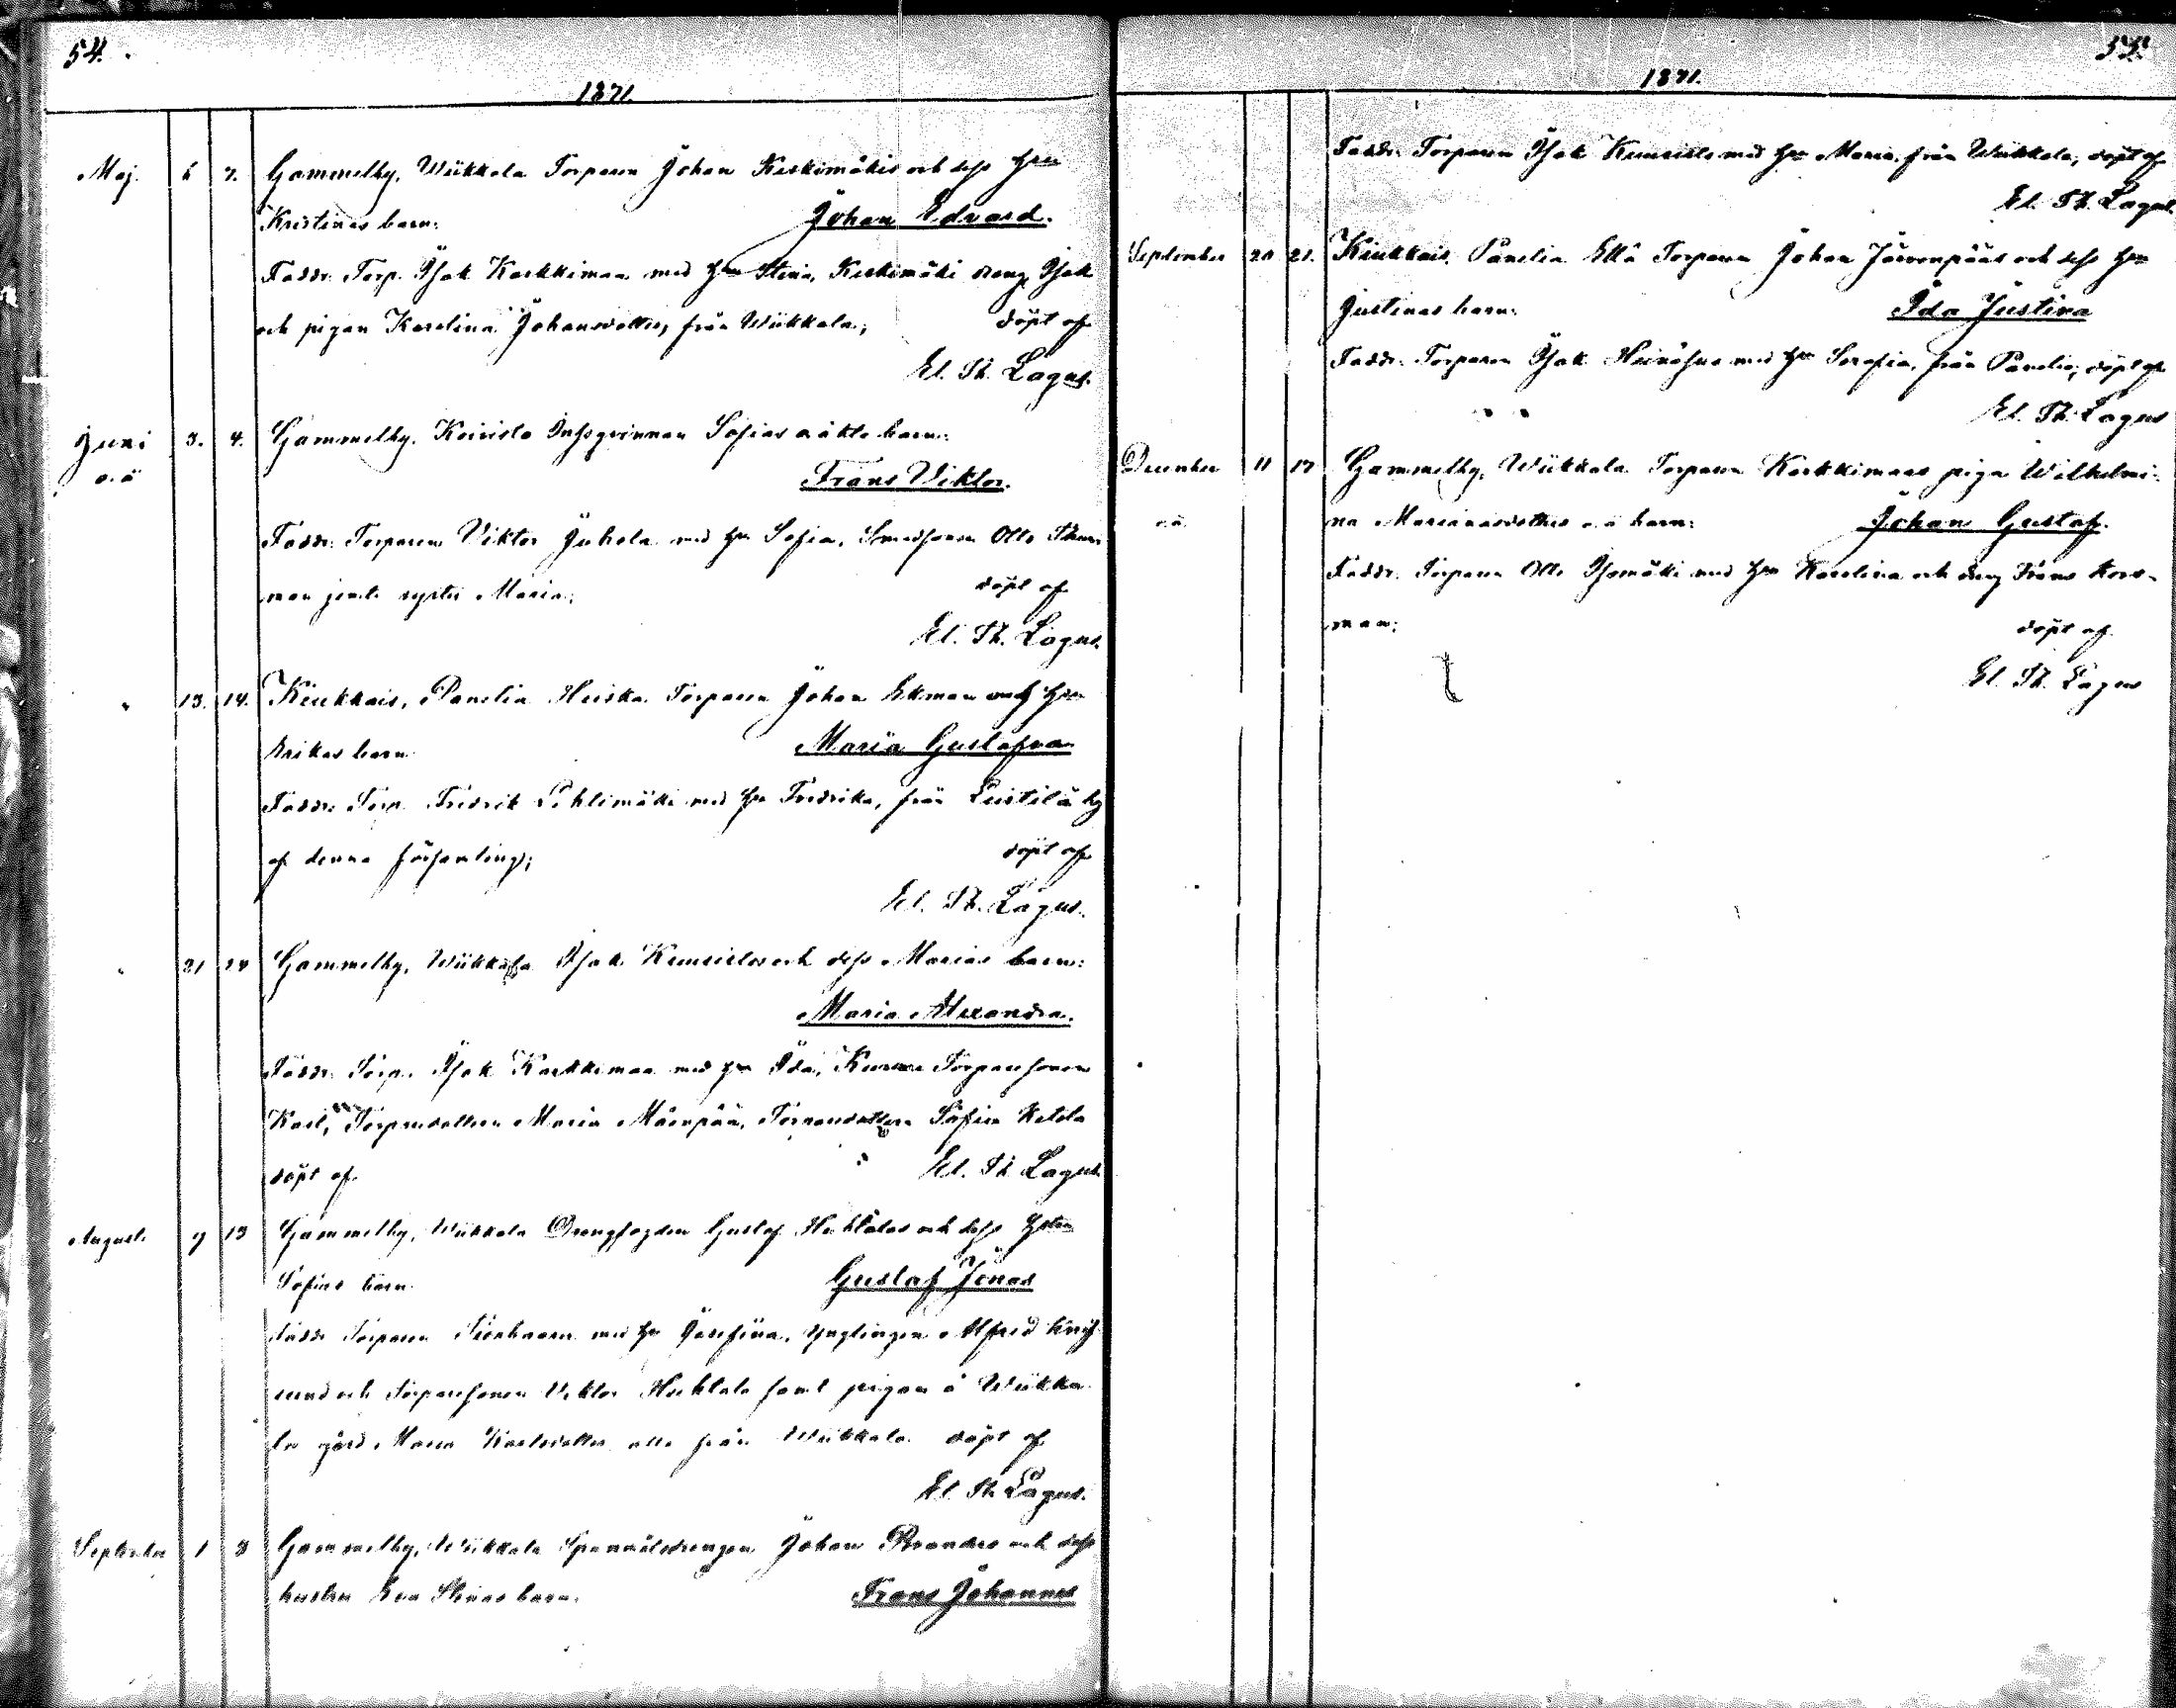 54.
1871.
Maj. 6 7. Gammelby, Wiikkala Torparen Johan Keskimäkis och dess hru
Kristinas barn: Johan Edvard.
Faddr. Torp. Isak Karkkimaa med hru Stina, Keskimäki dreng Isak
och pigan Karolina Johansdotter, från Wiikkala; döpt af
El. Th. Lagus.
Juni 3. 4. Gammelby. Koivisto Inhysqvinnan Sofias oäkta barn:
o.ä Frans Viktor.
Faddr. Torparen Viktor Juhola med hru Sofia, Smedsonen Otto
man jemte syster Maria; döpt af
El. Th. Lagus.
" 13. 14. Kiukkais, Panelia Heiska Torparen Johan Ekman och hru
Erikas barn Maria Gustafva
Faddr: Torp. Fredrik Pihlimäki med hru Fredrika, från Leistilä by
af denna församling; döpt af
El. Th. Lagus.
" 21 24 Gammelby, Wiikkala Isak och dess Marias barn:
Maria Alexandra.
Faddr. Torp. Isak Karkkimaa med hru Ida, Torparesonen
Karl, Torparedottern Maria Mäenpää, Torparedottern Sofia Ketola
döpt af El. Th. Lagus.
Augusti 9 13 Gammelby, Wiikkala Drengfogden Gustaf och dess hstru
Sofias barn. Gustaf Jonas
Faddr Torparen med hru Josefina, Ynglingen Alfred
och Torparesonen Viktor samt pigan å Wiikka
la gård Maria Karlsdotter alla från Wiikkala döpt af
El. Th. Lagus.
September 1 3 Gammelby, Wiikkala Johan Branders och dess
hustru Eva Stinas barn. Frans Johannes
55.
1871.
Faddr. Torparen Isak med hru Maria från Wiikkala, döpt af
El. Th. Lagus.
September 20 21. Kiukkais, Panelia Ellä Torparen Johan Järvenpääs och dess hru
Justinas barn: Ida Justina
Faddr. Torparen Isak med hru Serafia, från Panelia; döpt af
El. Th. Lagus
December 11 17 Gammelby, Wiikkala Torparen Karkkimaas piga Wilhelmi-
o.ä. na Mariasdotters o.ä barn: Johan Gustaf.
Faddr. Torparen Otto Isomäki med hru Karolina och dreng Frans
man; döpt af
El. Th. Lagus